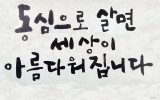 동심으로 살면
세상이
아름다워집니다